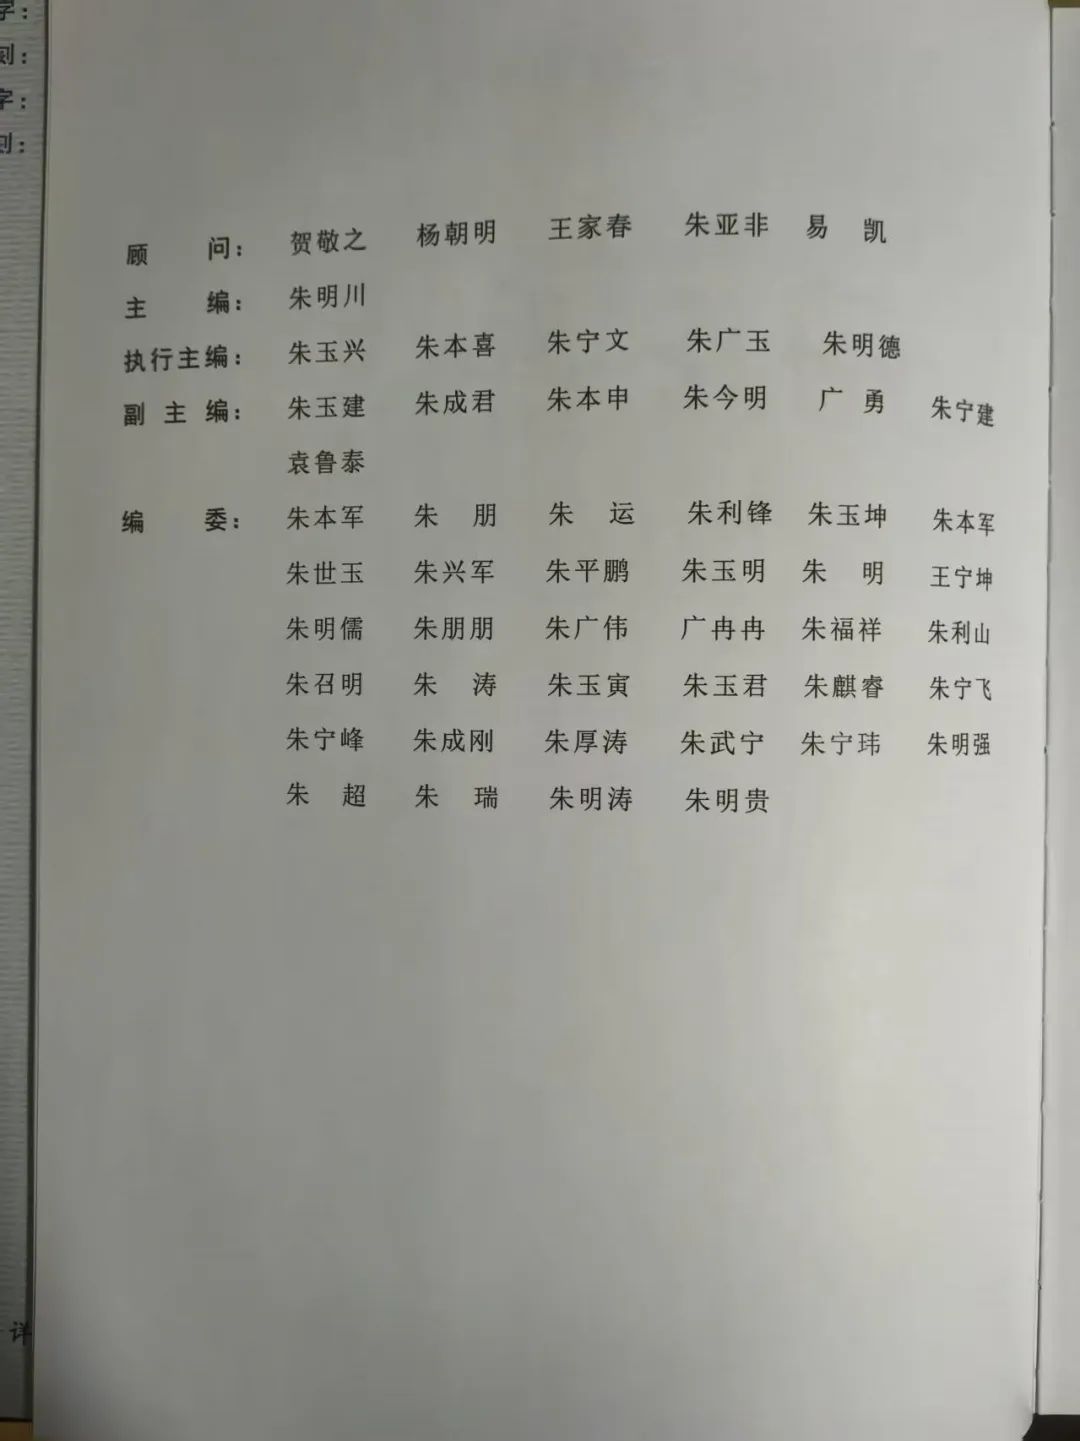 字：
刻：
字：
刻：
详
顾　　问：　贺敬之　杨朝明　王家春　朱亚非　易　凯
主　　编：　朱明川
执行主编：　朱玉兴　朱本喜　朱宁文　朱广玉　朱明德
副 主 编：　朱玉建　朱成君　朱本申　朱今明　广　勇　朱宁建
袁鲁泰
编　　委：　朱本军　朱　朋　朱　运　朱利锋　朱玉坤　朱本军
朱世玉　朱兴军　朱平鹏　朱玉明　朱　明　王宁坤
朱明儒　朱朋朋　朱广伟　广冉冉　朱福祥　朱利山
朱召明　朱　涛　朱玉寅　朱玉君　朱麒睿　朱宁飞
朱宁峰　朱成刚　朱厚涛　朱武宁　朱宁玮　朱明强
朱　超　朱　瑞　朱明涛　朱明贵